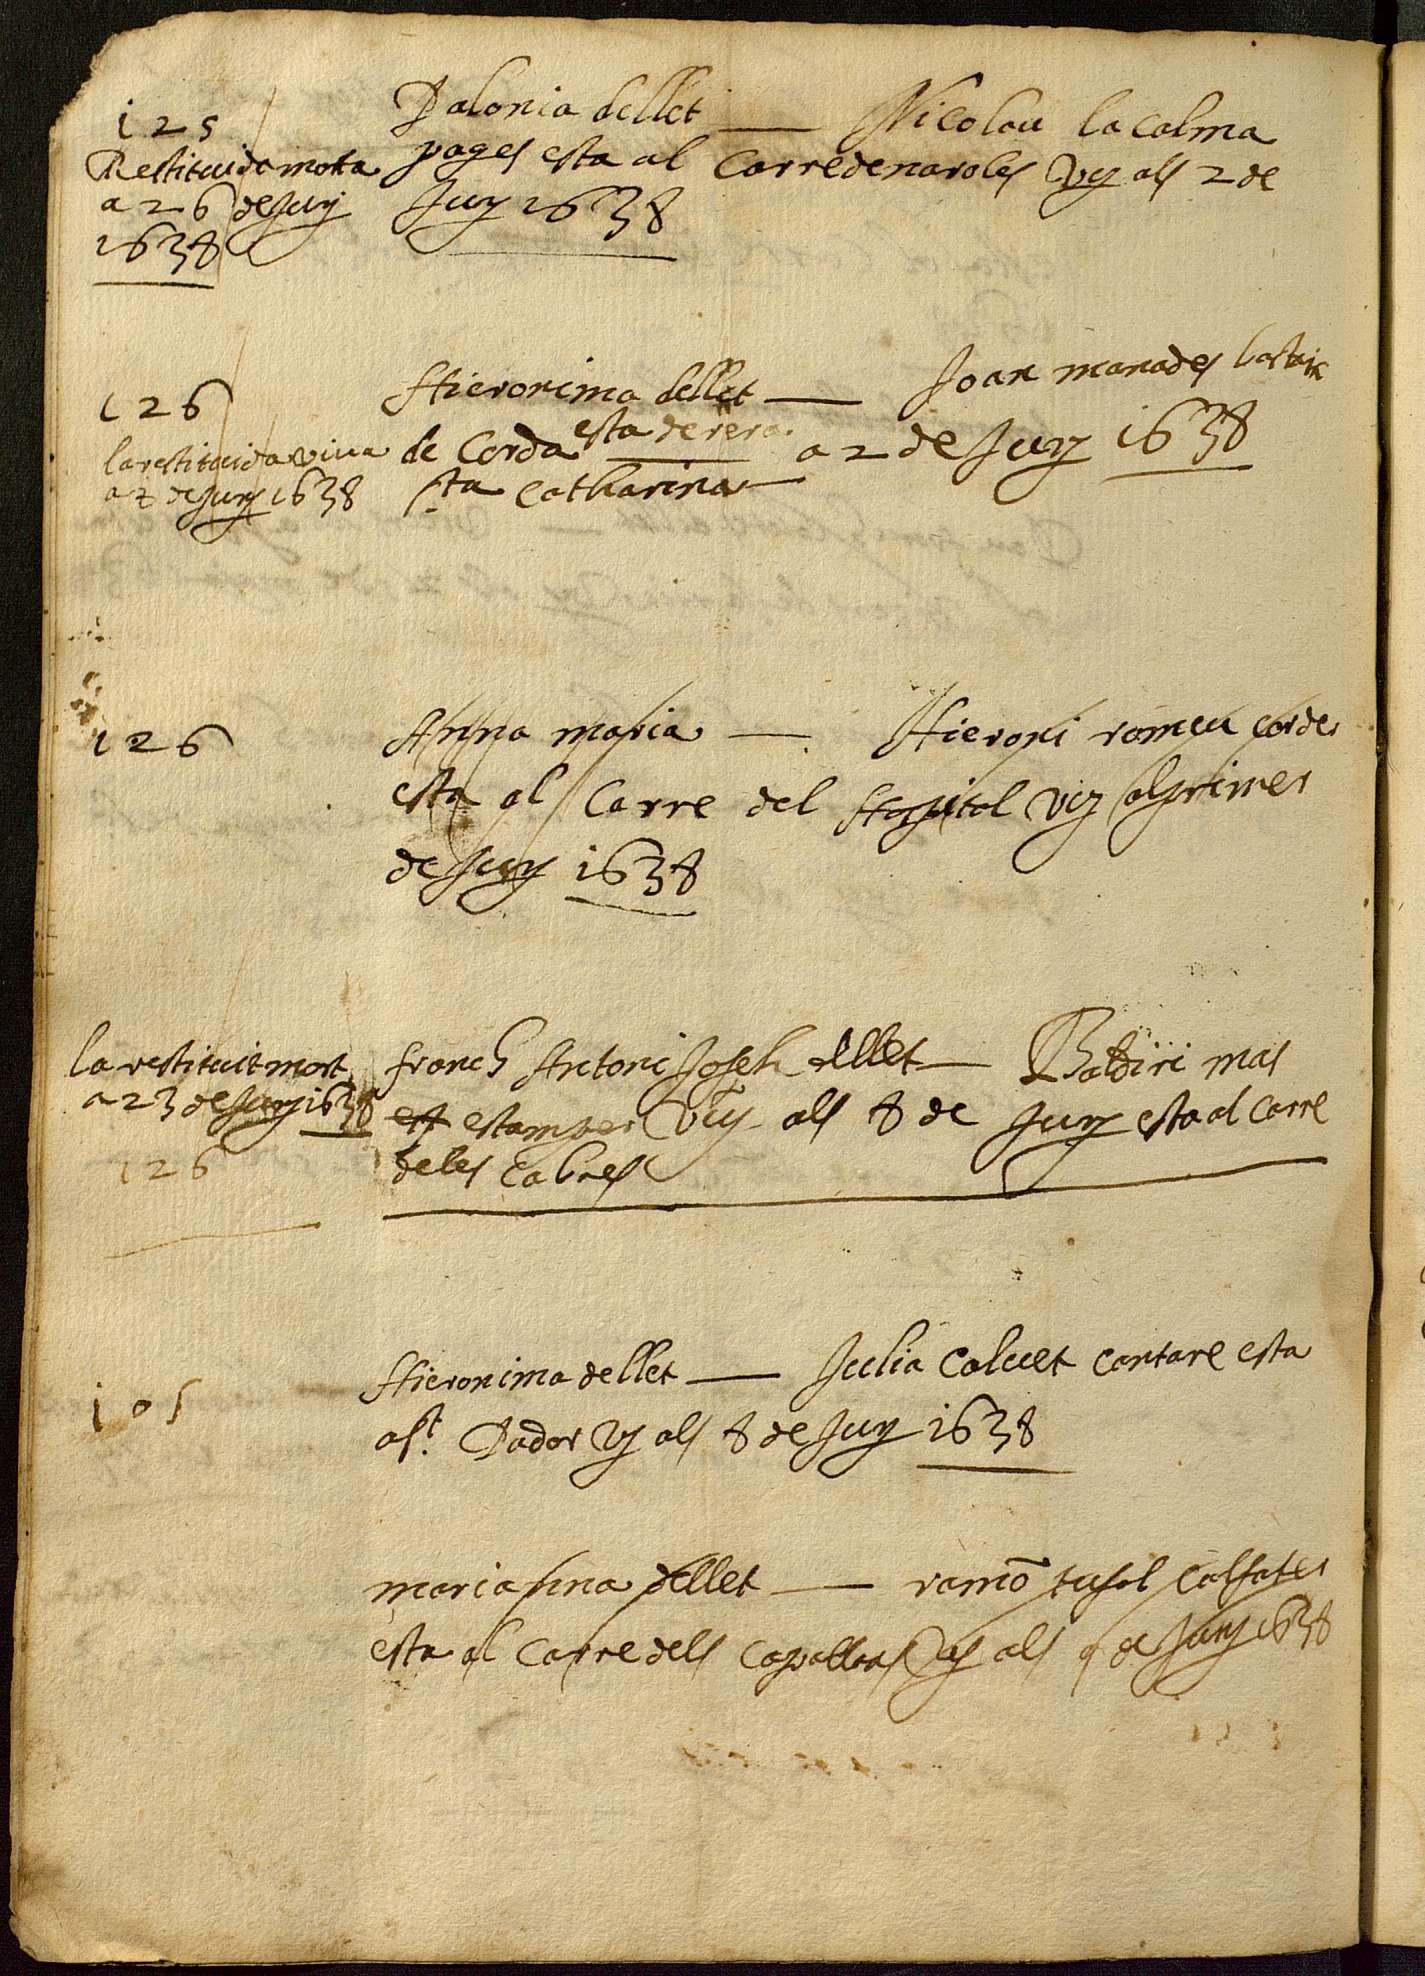 125
Restituida morta
a 26 de Juÿ
1638
Palonia de llet — Nicolau la calma
pages esta al Carre de naroles Vy als 2 de
Juÿ 1638
126
la restituida viua
a 2 de Juny 1638
Hieronima de llet — Joan manades bastaix
de Corda esta derrera a 2 de Juÿ 1638
sta Catharina
126
Anna maria — Hieroni romeu corder
esta al Carre del Hospital Vy al primer
de Juÿ 1638
la restituit mort
a 23 de Juny 1638
126
franch Antoni Joseph de llet — Baldiri mas
estamper Vuy als 8 de Juÿ esta al Carre
de les Cabres
105
Hieronima de llet — Julia Caluet Cantare esta
a st. Pador Vy als 8 de Juÿ 1638
mariaṅna de llet — ramō tusol Calsater
esta al Carre dels Capellans Vy als 9 de Juny 1638